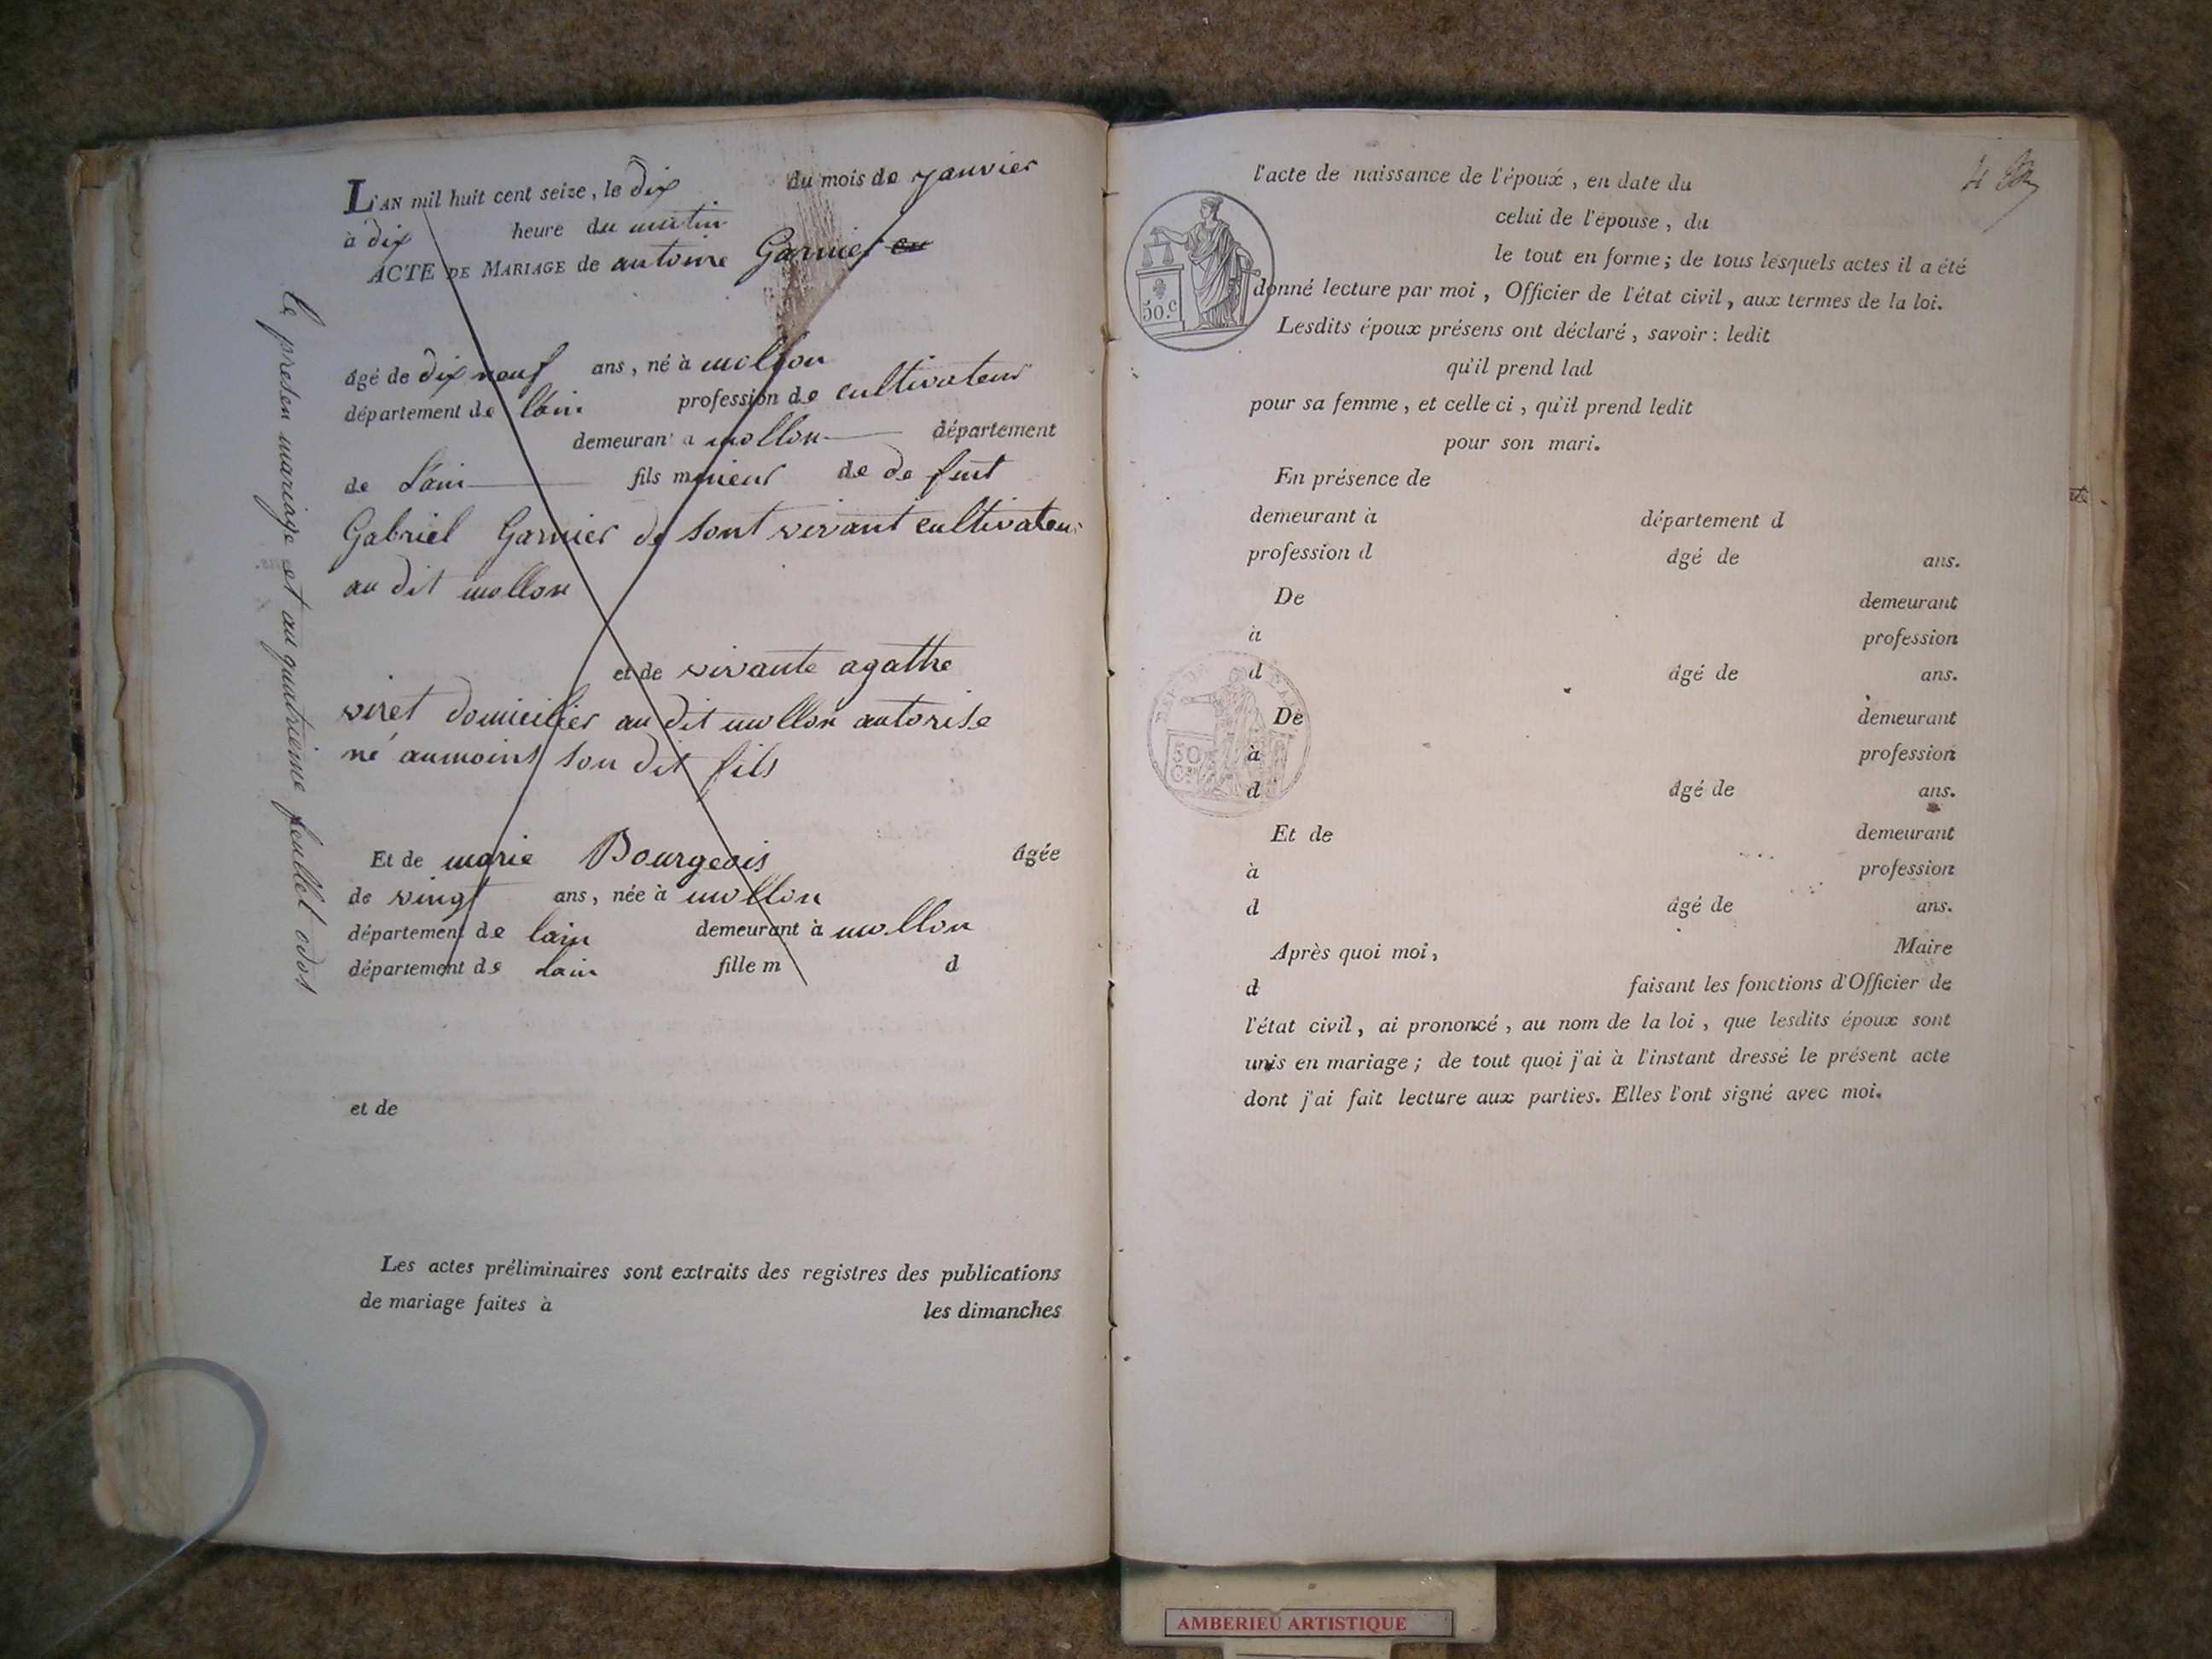 L'AN mil huit cent seize, le dix du mois de janvier
à dix heure du matin
ACTE DE MARIAGE de antoine Garnier
âgé de dix neuf ans, né à mollon
département de lain profession de cultivateur
demeurant a mollon département
de Lain fils mineur de de funt
Gabriel Garnier de sont vivant cultivateur
au dit mollon
et de vivante agathe
viret domicilier au dit mollon autorise
né aumoins son dit fils
Et de marie Bourgeois âgée
de vingt ans, née à mollon
département de lain demeurant à mollon
département de Lain fille m d
et de
Les actes préliminaires sont extraits des registres des publications
de mariage faites à les dimanches
le presen mariage et au quatrieme feullet
l'acte de naissance de l'époux, en date du
celui de l'épouse, du
le tout en forme; de tous lesquels actes il a été
donné lecture par moi, Officier de l'état civil, aux termes de la loi.
Lesdits époux présens ont déclaré, savoir: ledit
qu'il prend lad
pour sa femme, et celle ci, qu'il prend ledit
pour son mari.
En présence de
demeurant à département d
profession d âgé de ans.
De demeurant
à profession
d âgé de ans.
De demeurant
à profession
d âgé de ans.
Et de demeurant
à profession
d âgé de ans.
Après quoi moi, Maire
d faisant les fonctions d'Officier de
l'état civil, ai prononcé, au nom de la loi, que lesdits époux sont
unis en mariage; de tout quoi j'ai à l'instant dressé le présent acte
dont j'ai fait lecture aux parties. Elles l'ont signé avec moi.
4
50.c
50
C.
AMBERIEU ARTISTIQUE